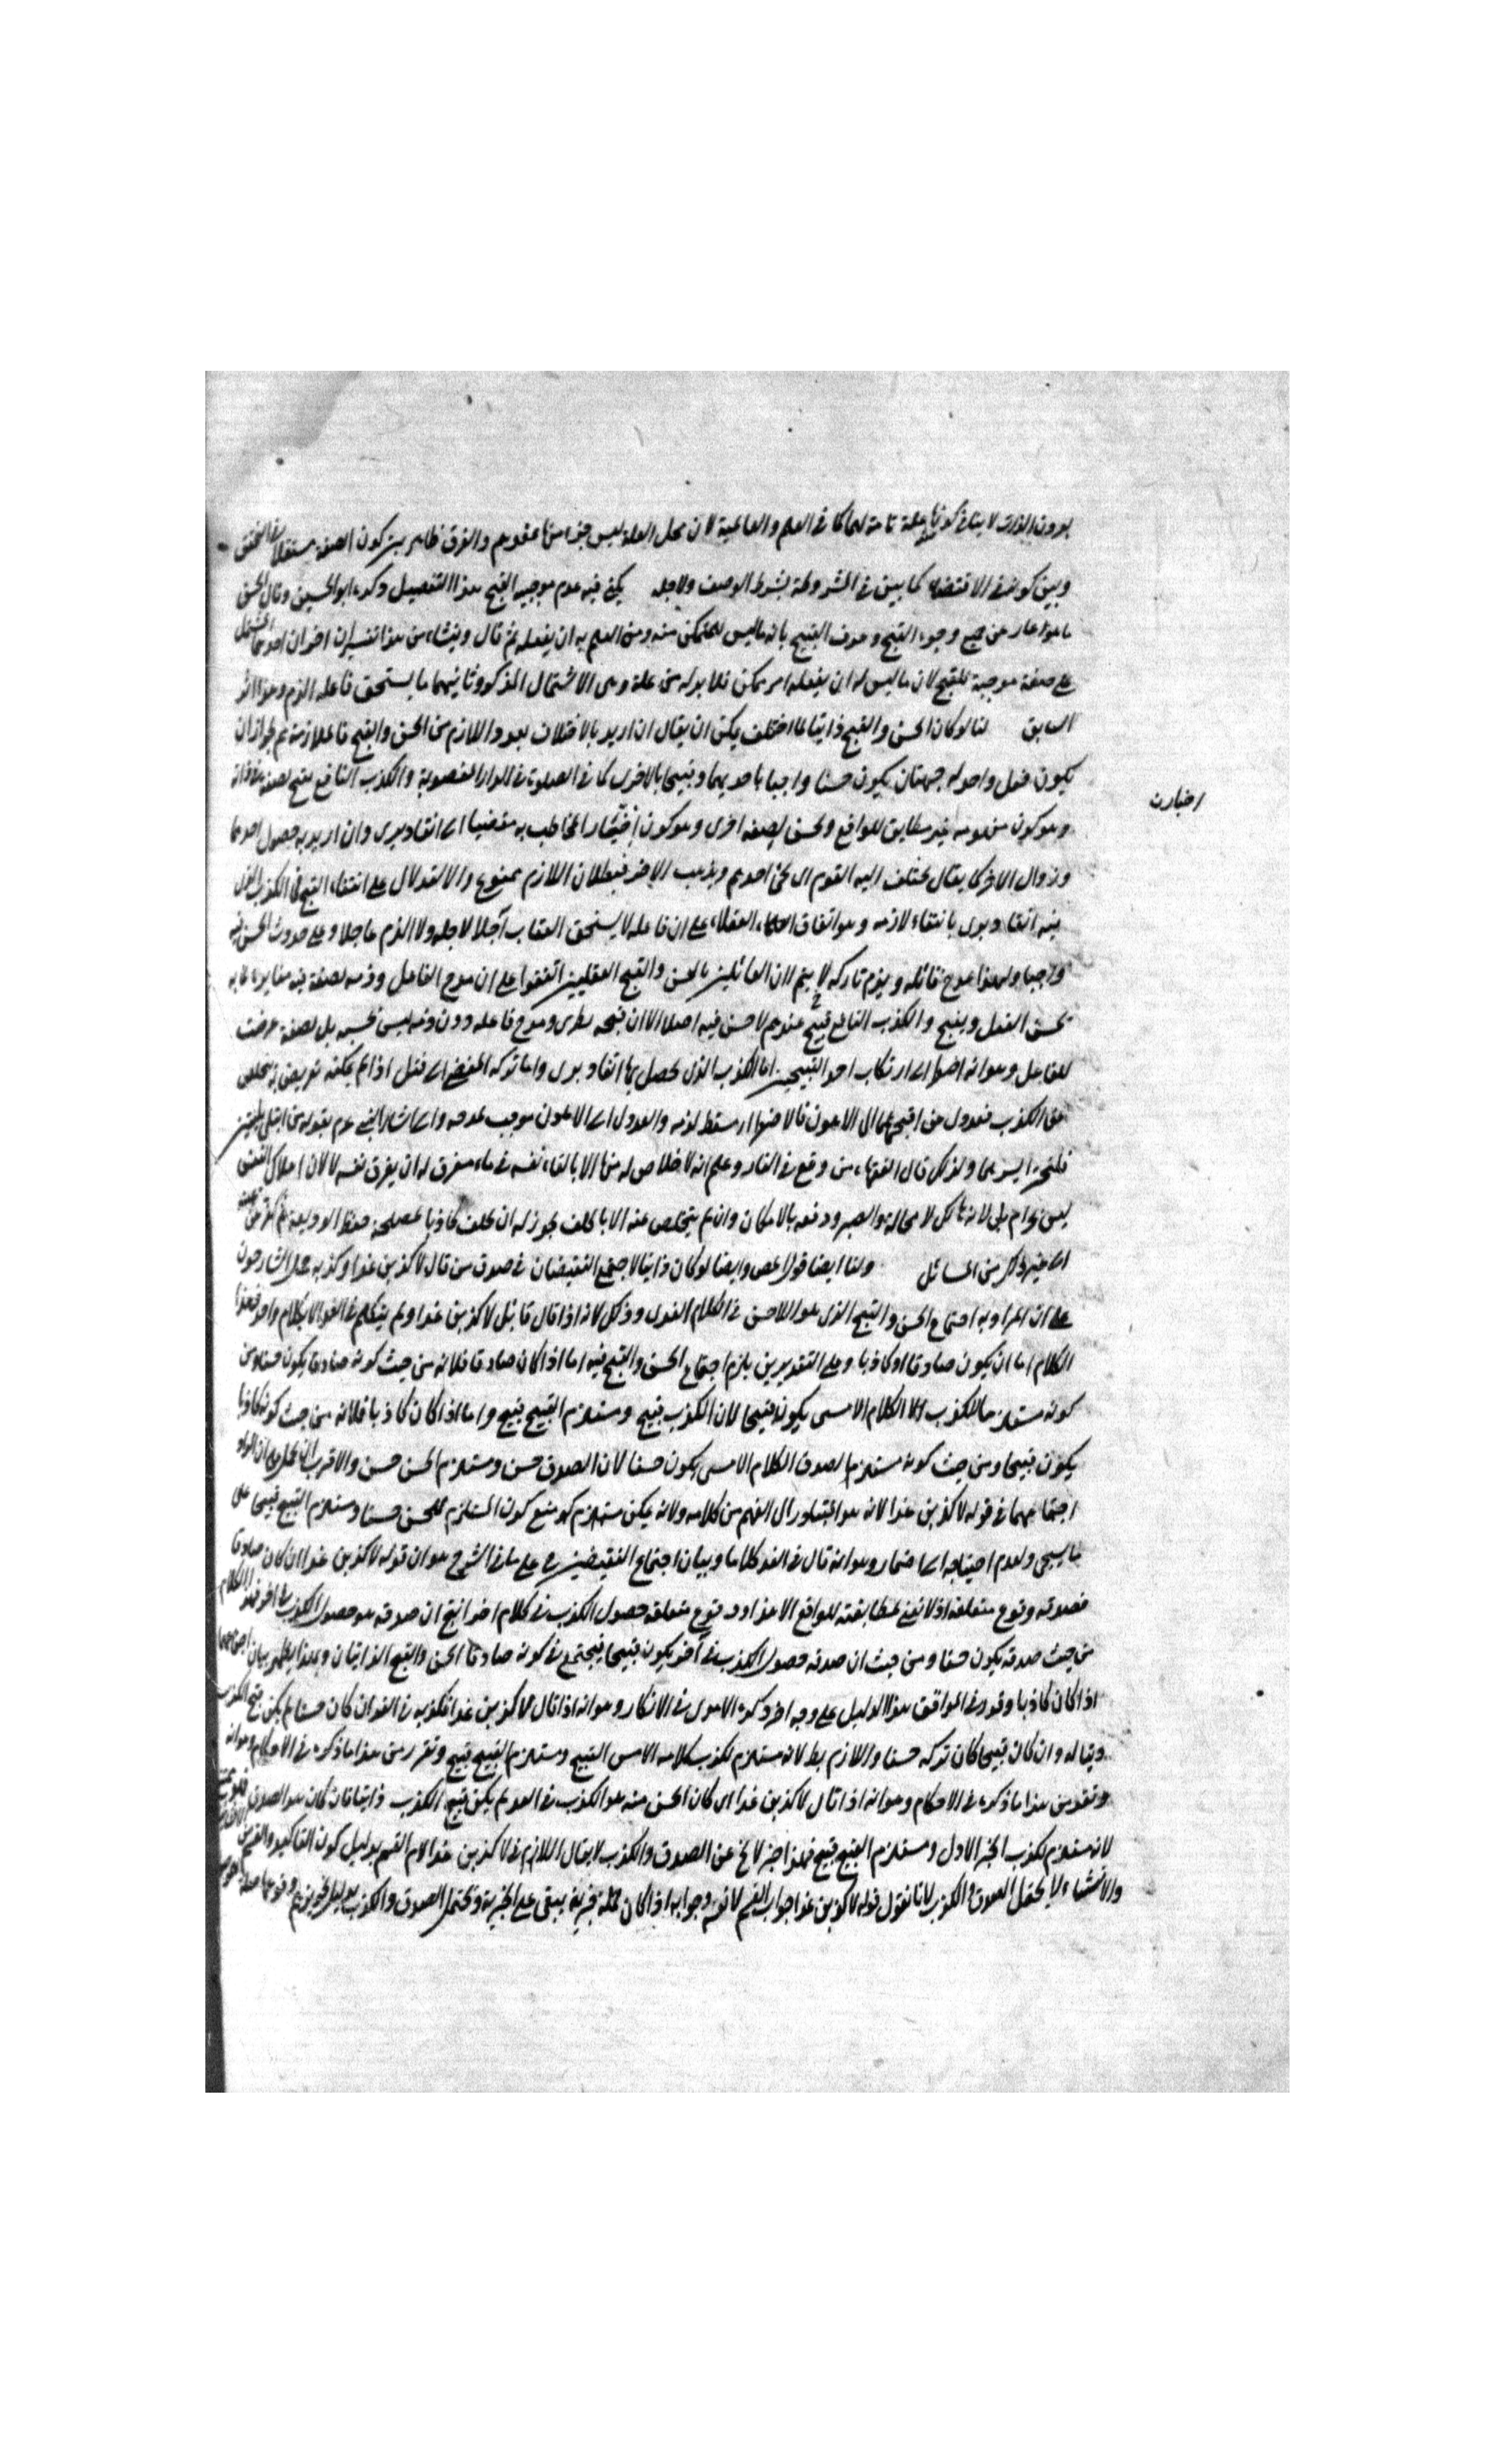 بدون الذات لا ينافي كونها علة تامة لهما كما في العلم والعالمية لان محل العلة ليس جزء منها عندهم والفرق ظاهر بين كون الصفة مستقلا في التحقق
وبين كونه في الاقتضاء كما بين في المشروطة بشرط الوصف ولاجله يكفي فيه عدم موجبه القبح هذا التفصيل ذكره ابو الحسين وقال الحسن
ما هو عار عن جميع وجوه القبح وعرف القبيح بانه ما ليس للمتمكن منه ومن العلم به ان يفعله ثم قال وينشاء من هذا تفسيران اخران احدهما المشتمل
على صفة موجبة للقبح لان ما ليس له ان يفعله امر ممكن فلا بد له من علة وهي الاشتمال المذكور وثانيهما ما يستحق فاعله الذم وهو الاثر
السابق لنا لو كان الحسن والقبح ذاتيا لما اختلف يمكن ان يقال ان اريد بالاختلاف بعد واللازم من الحسن والقبح فالملازمة ثم لجواز ان
يكون فعل واحد له جهتان يكون حسنا واجبا باحديهما وقبيحا بالاخرى كما في الصلوة في الدار المغصوبة والكذب النافع يقبح لصفة في ذاته
اخبارت
وهو كون مفهومه غير مطابق للواقع ويحسن لصفة اخرى وهو كون اخبار المخاطب به مفضيا الى انقاذ بري وان اريد به حصول احدهما
وزوال الاخر كما يقال يختلف اليه القوم اي يجئ احدهم ويذهب الاخر فبطلان اللازم ممنوع والاستدلال على انتفاء القبح في الكذب الذي
فيه انقاذ بري بانتفاء لازمه وهو اتفاق العقلاء على ان فاعله لا يستحق العقاب آجلا لاجله ولا الذم عاجلا وعلى حدوث الحسن فيه
واجبا ولهذا يمدح قائله ويذم تاركه لا يتم لان القائلين بالحسن والقبح العقليين اتفقوا على ان مدح الفاعل وذمه لصفة فيه مغايرة لما به
يحسن الفعل ويقبح والكذب النافع قبيح عندهم لا حسن فيه اصلا الا ان قبحه ومدح فاعله دون ذمه ليس لحسنه بل لصفة عرضت
للفاعل وهو انه اضطر الى ارتكاب احد القبيحين اما الكذب الذي يحصل بها انقاذ بري واما تركه المفضي الى قتل اذا لم يمكنه تعريض
عن الكذب فعدول من اقبحهما الى الاهون فالاضطرار مسقط لذمه والعدول الى الاهون موجب لمدحه واليه اشار النبي عم بقوله من ابتلي ببليتين
فليختر ايسرهما ولذلك قال الفقهاء من وقع في النار وعلم انه لا خلاص له منها الا بالقاء نفسه في ماء مغرق له ان يغرق نفسه لا لان اهلاك النفس
ليس بحرام بل لانه هالك لا محالة والصبر ودفعه بالامكان وان لم يتخلص عنه الا بالحلف يجوز له ان يحلف كاذبا لمصلحة حفظ الوديعة
الى غير ذلك من المسائل ولنا ايضا قوله وايضا لو كان ذاتيا لاجتمع النقيضان في صدق من قال لاكذبن غدا وكذبه حمل الشارحون
على ان المراد به اجتماع الحسن والقبح الذي هو اللاحسن في الكلام الغدي وذلك لانه اذا قال قائل لاكذبن غدا ولم يتكلم في الغد الا بكلام واحد فهذا
الكلام اما ان يكون صادقا او كاذبا وعلى التقديرين يلزم اجتماع الحسن والقبح فيه اما اذا كان صادقا فلانه من حيث كونه صادقا يكون حسنا ومن
كونه مستلزما لكذب الكلام الامسي يكون قبيحا لان الكذب قبيح ومستلزم القبيح قبيح واما اذا كان كاذبا فلانه من حيث كونه كاذبا
يكون قبيحا ومن حيث كونه مستلزما لصدق الكلام الامسي يكون حسنا لان الصدق حسن ومستلزم الحسن حسن والاقرب ان يحمل على ان المراد
اجتماعهما في قوله لاكذبن غدا لانه هو المتبادر الى الفهم من كلامه ولانه يمكن منع كون المستلزم للحسن حسنا ومستلزم القبيح قبيحا على
ما سيجئ ولعدم احتياجه الى اضمار وهو انه قال في الغد كلاما وبيان اجتماع النقيضين على ما في الشرح هو ان قوله لاكذبن غدا ان كان صادقا
فصدقه وقوع متعلقه اذ لا نعني بمطابقته للواقع الا هذا ووقوع متعلقه حصول الكذب في كلام اخر انتج ان صدقه هو حصول الكذب في اخر فهذا الكلام
من حيث صدقه يكون حسنا ومن حيث ان صدقه حصول الكذب في آخر يكون قبيحا فيجتمع في كونه صادقا الحسن والقبح الذاتيان وبهذا يظهر بيان اجتماعهما
اذا كان كاذبا وقرر في المواقف هذا الدليل على وجه اخر ذكره الامدي في الابكار وهو انه اذا قال لاكذبن غدا فكذبه في الغد ان كان حسنا لم يكن قبح الكذب
ذاتيا له وان كان قبيحا كان تركه حسنا واللازم بط لانه مستلزم لكذب كلامه الامس القبيح ومستلزم القبيح قبيح وتقرر من هذا ما ذكره في الاحكام وهو انه
وتقدير هذا ما ذكره في الاحكام وهو انه اذا قال لاكذبن غدا ان كان الحسن منه هو الكذب في الغد لم يكن قبح الكذب ذاتيا فان كان هو الصدق
لانه مستلزم لكذب الخبر الاول ومستلزم القبيح قبيح فهذا خبر لا يخ عن الصدق والكذب لا يقال اللازم في لاكذبن غدا لام القسم بدليل كون التاكيد والقسم
والانشاء لا يحتمل الصدق والكذب لانا نقول قوله لاكذبن غدا جواب القسم لا نفسه وجوابه اذا كان جملة خبرية يبقى على الخبرية ويحتمل الصدق والكذب